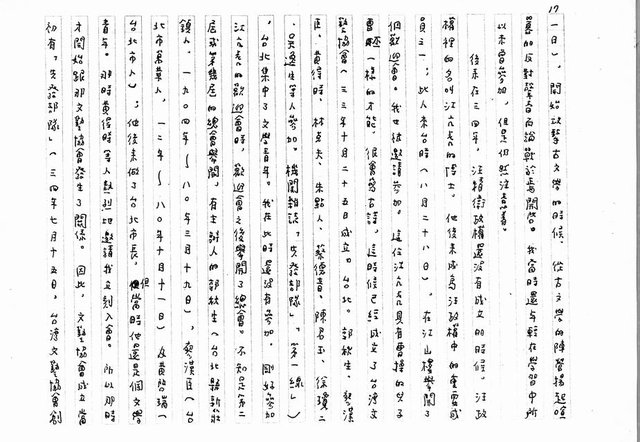 17
一日），開始攻擊古文學的時候，從古文學的陣營揚起喧
囂的反對聲音而論戰於焉開啓。我當時還年輕在學習中所
以未曾參加，但是仍然注意著。
後來在三四年，汪精衛政權還沒有成立的時候，汪政
權裡的名叫江亢虎的博士。他後來成為汪政權中的重要成
員之一；此人來台時（八月二十八日），在江山樓舉開了
個歡迎會。我也被邀請參加。這位江亢虎具有曹操的兒子
曹一樣的才能，很會寫古詩。這時候已經成立了台灣文
藝協會（三三年十月二十五日成立。台北。郭秋生、廖漢
臣、黃得時、林克夫、朱點人、蔡德音、陳君玉、徐瓊二
、吳逸生等人參加。機關雜誌，「先發部隊」、「第一線」）
，台北集中了文學青年。我在此時還沒有參加，剛好參加
江亢虎的歡迎會時，歡迎會之後舉開了總會。不知是第二
屆或第幾屆的總會舉開，有主辦人的郭秋生（台北縣新莊
鎮人，一九〇四年～八〇年三月十九日），廖漢臣（台
北市萬華人，一二年～八〇年十月十一日）及黃啓瑞（
台北市人）；他後來做了台北市長，但當時他還是個文學
青年。那時黃得時等人熱烈地邀請我立刻入會。所以那時
才開始跟那文藝協會發生了關係。因此，文藝協會成立當
初有「先發部隊」（三四年七月十五日，台灣文藝協會創